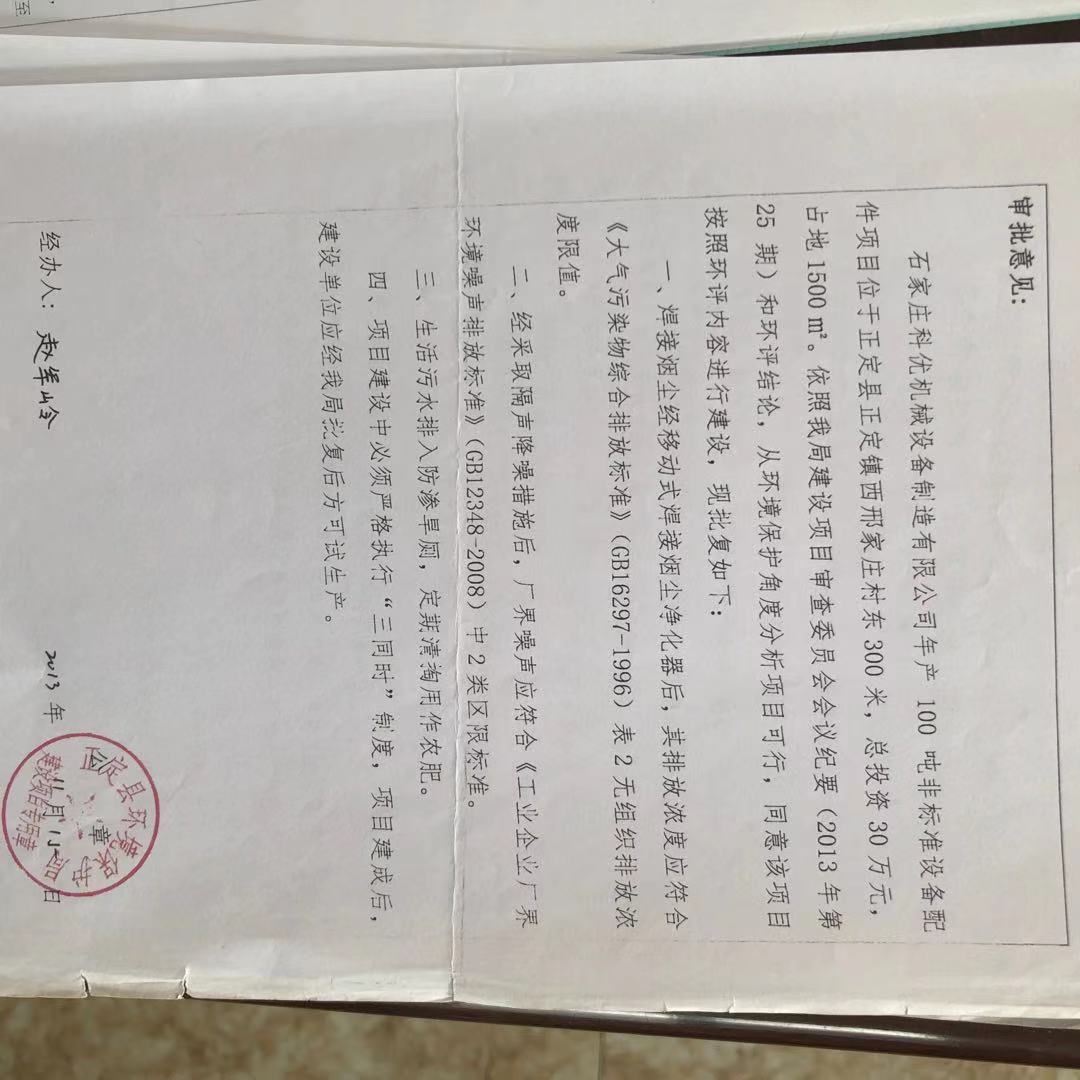 至
审批意见：
石家庄科优机械设备制造有限公司年产 100 吨非标准设备配
件项目位于正定县正定镇西邢家庄村东 300 米，总投资 30 万元，
占地 1500 ㎡。依照我局建设项目审查委员会会议纪要（2013 年第
25 期）和环评结论，从环境保护角度分析项目可行，同意该项目
按照环评内容进行建设，现批复如下：
一、焊接烟尘经移动式焊接烟尘净化器后，其排放浓度应符合
《大气污染物综合排放标准》（GB16297-1996）表 2 无组织排放浓
度限值。
二、经采取隔声降噪措施后，厂界噪声应符合《工业企业厂界
环境噪声排放标准》（GB12348-2008）中 2 类区限标准。
三、生活污水排入防渗旱厕，定期清掏用作农肥。
四、项目建设中必须严格执行“三同时”制度，项目建成后，
建设单位应经我局批复后方可试生产。
公 章
经办人：赵军岭
2013 年 11 月 日
正定县环境保护局
建设项目专用章